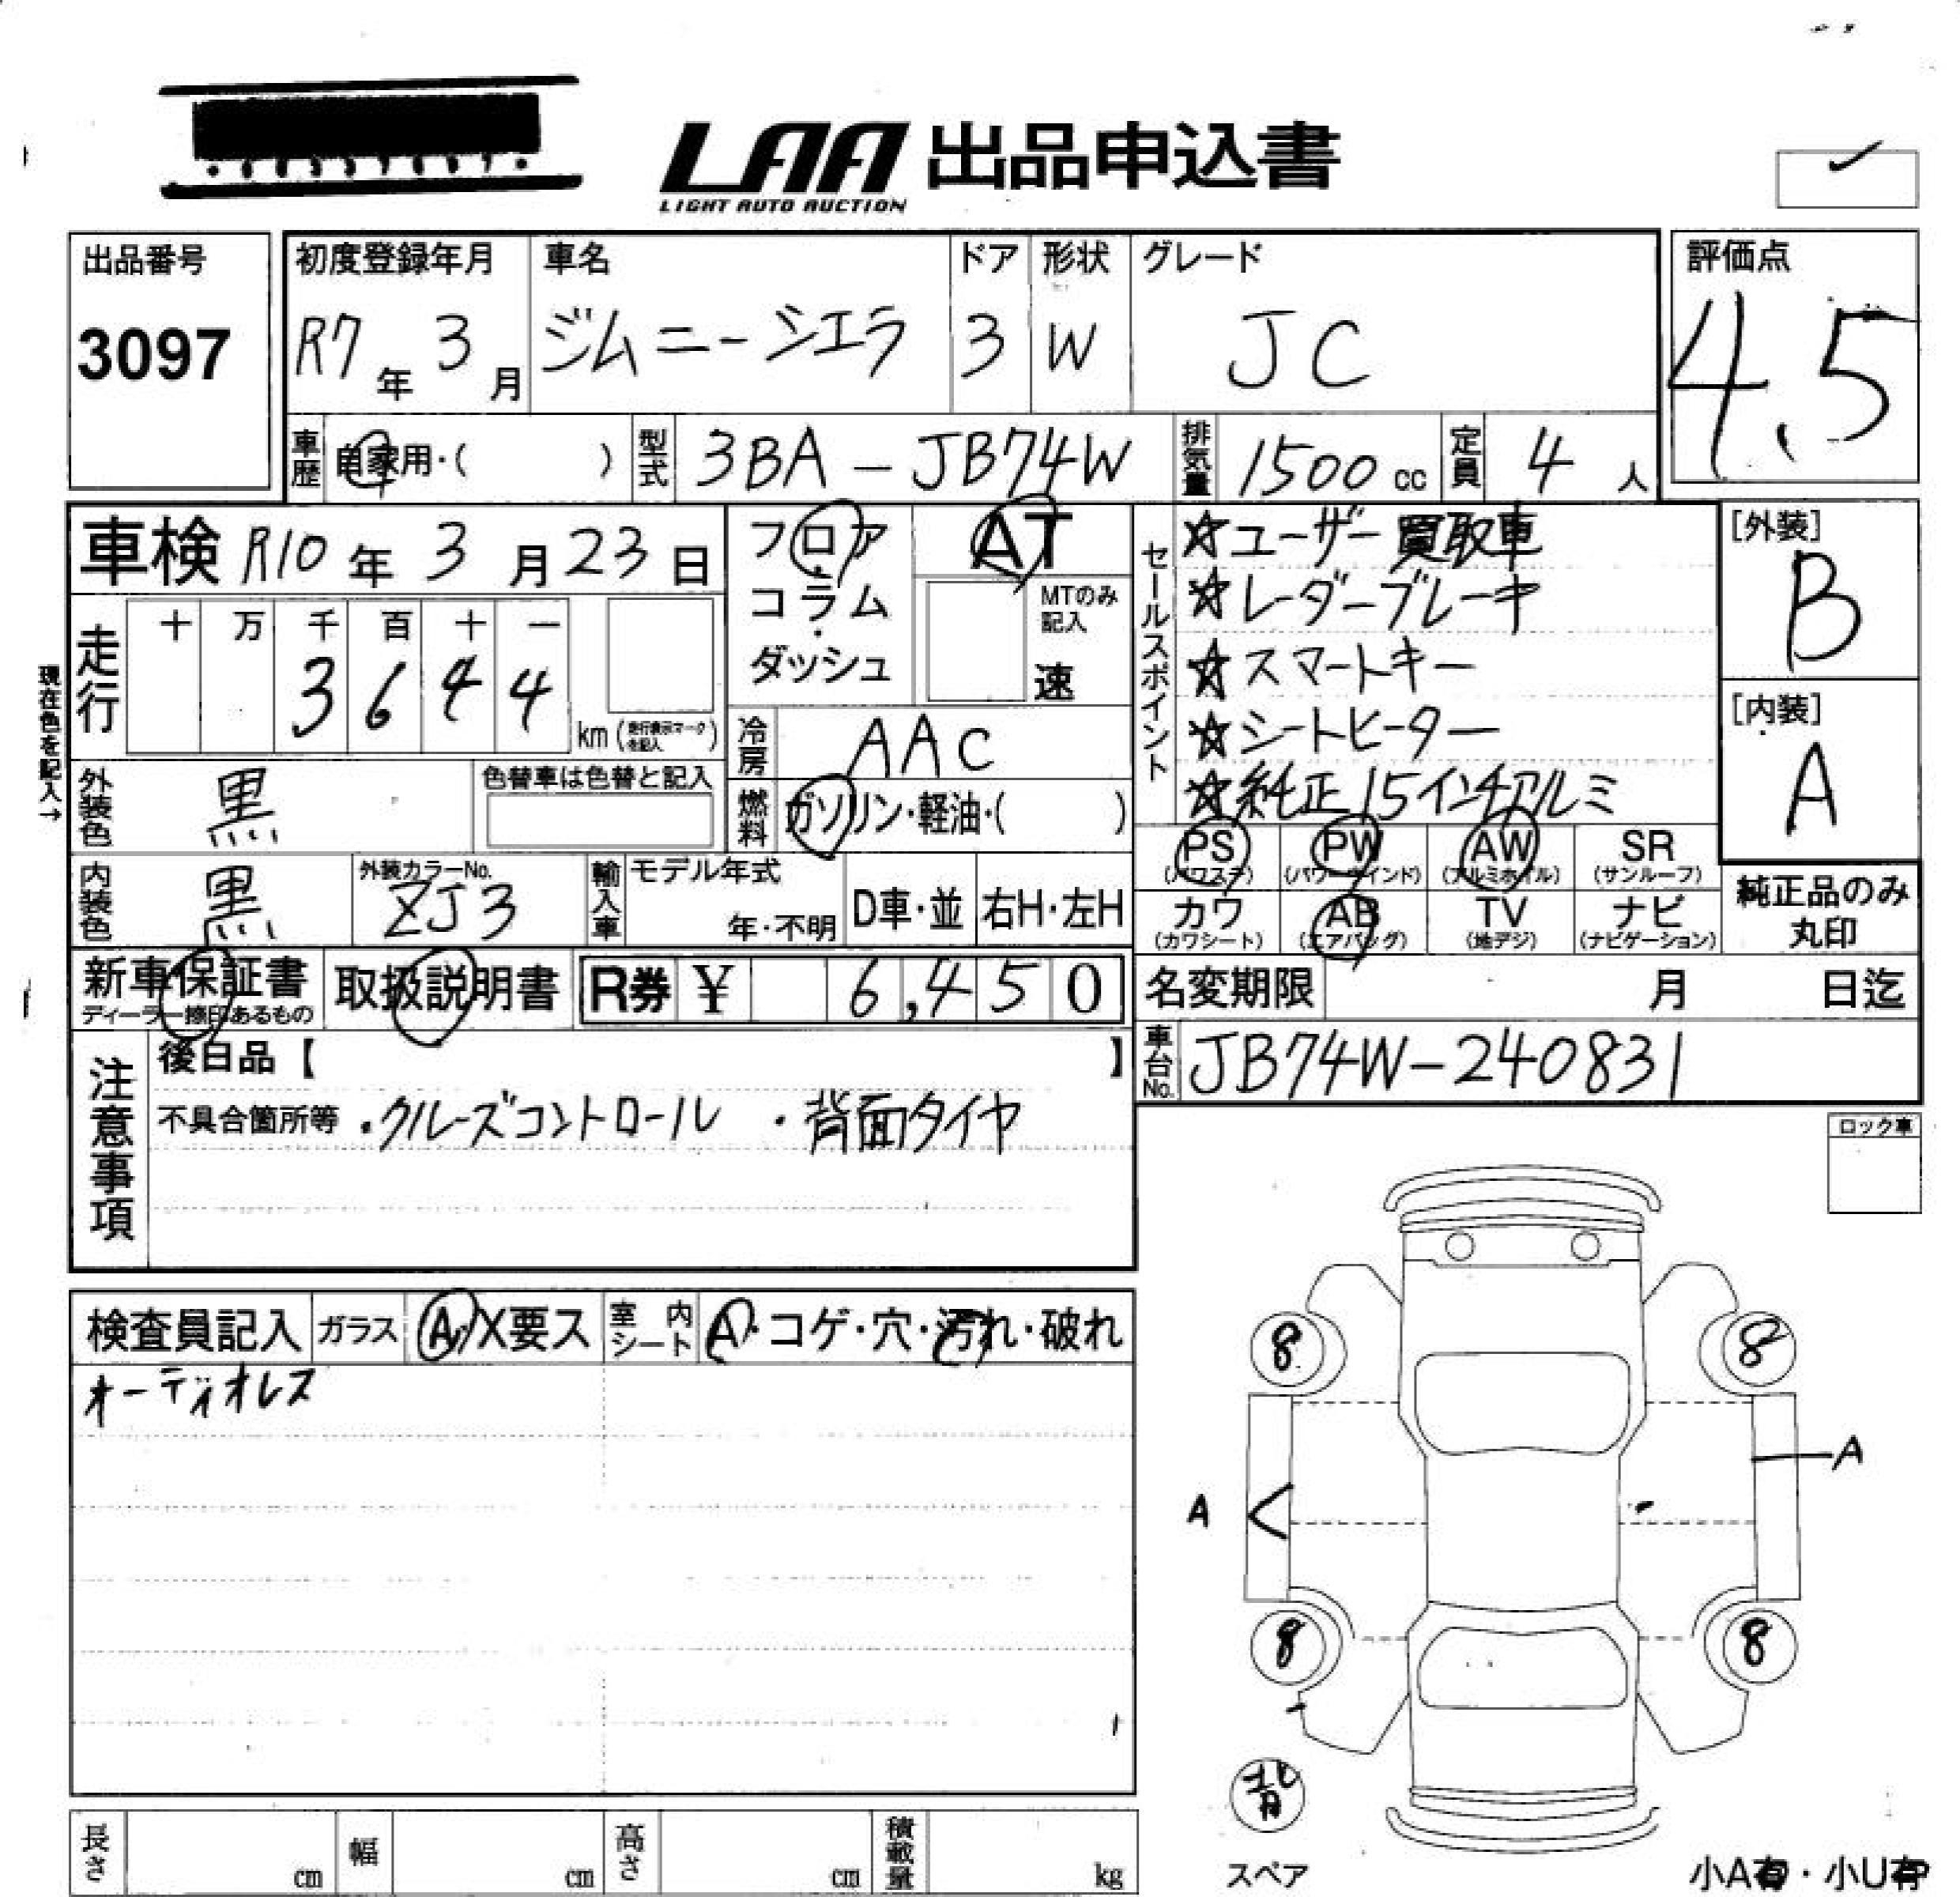 LAA 出品申込書
LIGHT AUTO AUCTION
出品番号
3097
初度登録年月
R7年 3月
車名
ジムニーシエラ
ドア
3
形状
W
グレード
JC
評価点
4.5
車歴 自家用・( )
型式 3BA-JB74W
排気量 1500cc
定員 4人
車検 R10年 3月 23日
フロア・コラム・ダッシュ
AT
MTのみ記入
速
セールスポイント
☆ユーザー買取車
☆レーダーブレーキ
☆スマートキー
☆シートヒーター
☆純正15インチアルミ
[外装]
B
[内装]
A
現在色を記入→
走行
十 万 千 百 十 一
3 6 4 4
km (走行表示マークを記入)
冷房 AAC
燃料 ガソリン・軽油・( )
外装色 黒
色替車は色替と記入
内装色 黒
外装カラーNo.
ZJ3
輸入車
モデル年式
年・不明
D車・並
右H・左H
PS (パワステ)
PW (パワーウインド)
AW (アルミホイル)
SR (サンルーフ)
カワ (カワシート)
AB (エアバッグ)
TV (地デジ)
ナビ (ナビゲーション)
純正品のみ丸印
新車保証書
ディーラー捺印あるもの
取扱説明書
R券 ¥ 6,450
名変期限 月 日迄
車台No. JB74W-240831
注意事項
後日品【 】
不具合箇所等 ・クルーズコントロール ・背面タイヤ
ロック車
検査員記入
ガラス A・X要ス
室内シート A・コゲ・穴・汚れ・破れ
オーディオレス
8 8
A
A
8 8
スペア
小A有・小U有
長さ cm
幅 cm
高さ cm
積載量 kg